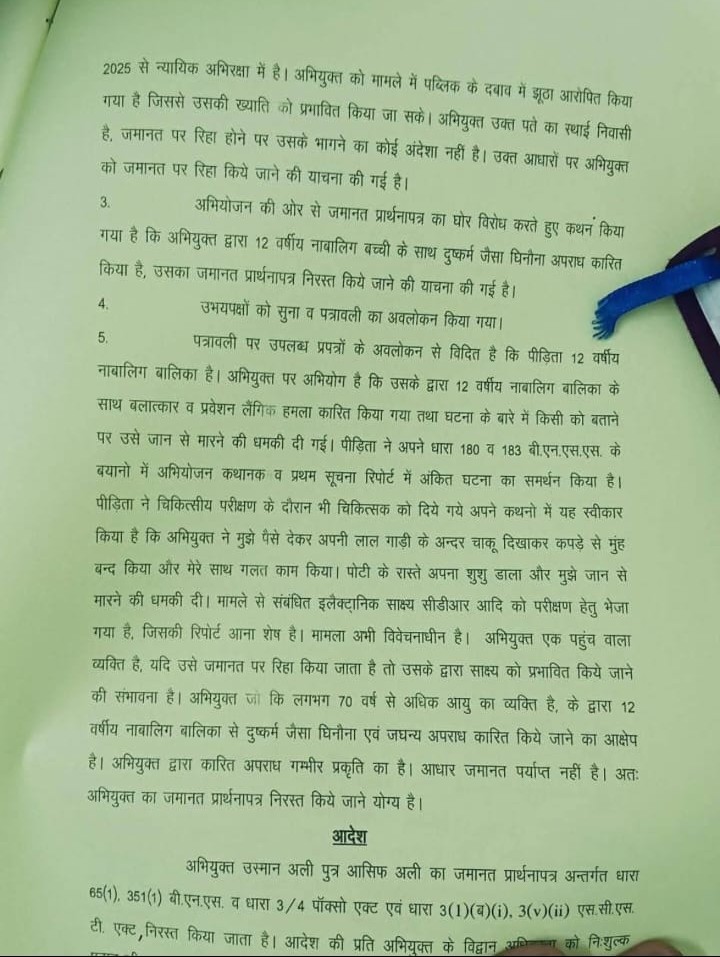 2025 से न्यायिक अभिरक्षा में है। अभियुक्त को मामले में पब्लिक के दबाव में झूठा आरोपित किया
गया है जिससे उसकी ख्याति को प्रभावित किया जा सके। अभियुक्त उक्त पते का स्थाई निवासी
है, जमानत पर रिहा होने पर उसके भागने का कोई अंदेशा नहीं है। उक्त आधारों पर अभियुक्त
को जमानत पर रिहा किये जाने की याचना की गई है।
3. अभियोजन की ओर से जमानत प्रार्थनापत्र का घोर विरोध करते हुए कथन किया
गया है कि अभियुक्त द्वारा 12 वर्षीय नाबालिग बच्ची के साथ दुष्कर्म जैसा घिनौना अपराध कारित
किया है, उसका जमानत प्रार्थनापत्र निरस्त किये जाने की याचना की गई है।
4. उभयपक्षों को सुना व पत्रावली का अवलोकन किया गया।
5. पत्रावली पर उपलब्ध प्रपत्रों के अवलोकन से विदित है कि पीड़िता 12 वर्षीय
नाबालिग बालिका है। अभियुक्त पर अभियोग है कि उसके द्वारा 12 वर्षीय नाबालिग बालिका के
साथ बलात्कार व प्रवेशन लैंगिक हमला कारित किया गया तथा घटना के बारे में किसी को बताने
पर उसे जान से मारने की धमकी दी गई। पीड़िता ने अपने धारा 180 व 183 बी.एन.एस.एस. के
बयानो में अभियोजन कथानक व प्रथम सूचना रिपोर्ट में अंकित घटना का समर्थन किया है।
पीड़िता ने चिकित्सीय परीक्षण के दौरान भी चिकित्सक को दिये गये अपने कथनो में यह स्वीकार
किया है कि अभियुक्त ने मुझे पैसे देकर अपनी लाल गाड़ी के अन्दर चाकू दिखाकर कपड़े से मुंह
बन्द किया और मेरे साथ गलत काम किया। पोटी के रास्ते अपना शुशु डाला और मुझे जान से
मारने की धमकी दी। मामले से संबंधित इलैक्ट्रानिक साक्ष्य सीडीआर आदि को परीक्षण हेतु भेजा
गया है, जिसकी रिपोर्ट आना शेष है। मामला अभी विवेचनाधीन है। अभियुक्त एक पहुंच वाला
व्यक्ति है, यदि उसे जमानत पर रिहा किया जाता है तो उसके द्वारा साक्ष्य को प्रभावित किये जाने
की संभावना है। अभियुक्त जो कि लगभग 70 वर्ष से अधिक आयु का व्यक्ति है, के द्वारा 12
वर्षीय नाबालिग बालिका से दुष्कर्म जैसा घिनौना एवं जघन्य अपराध कारित किये जाने का आक्षेप
है। अभियुक्त द्वारा कारित अपराध गम्भीर प्रकृति का है। आधार जमानत पर्याप्त नहीं है। अतः
अभियुक्त का जमानत प्रार्थनापत्र निरस्त किये जाने योग्य है।
आदेश
अभियुक्त उस्मान अली पुत्र आसिफ अली का जमानत प्रार्थनापत्र अन्तर्गत धारा
65(1), 351(1) बी.एन.एस. व धारा 3/4 पॉक्सो एक्ट एवं धारा 3(1)(ब)(i), 3(v)(ii) एस.सी.एस.
टी. एक्ट, निरस्त किया जाता है। आदेश की प्रति अभियुक्त के विद्वान को निःशुल्क